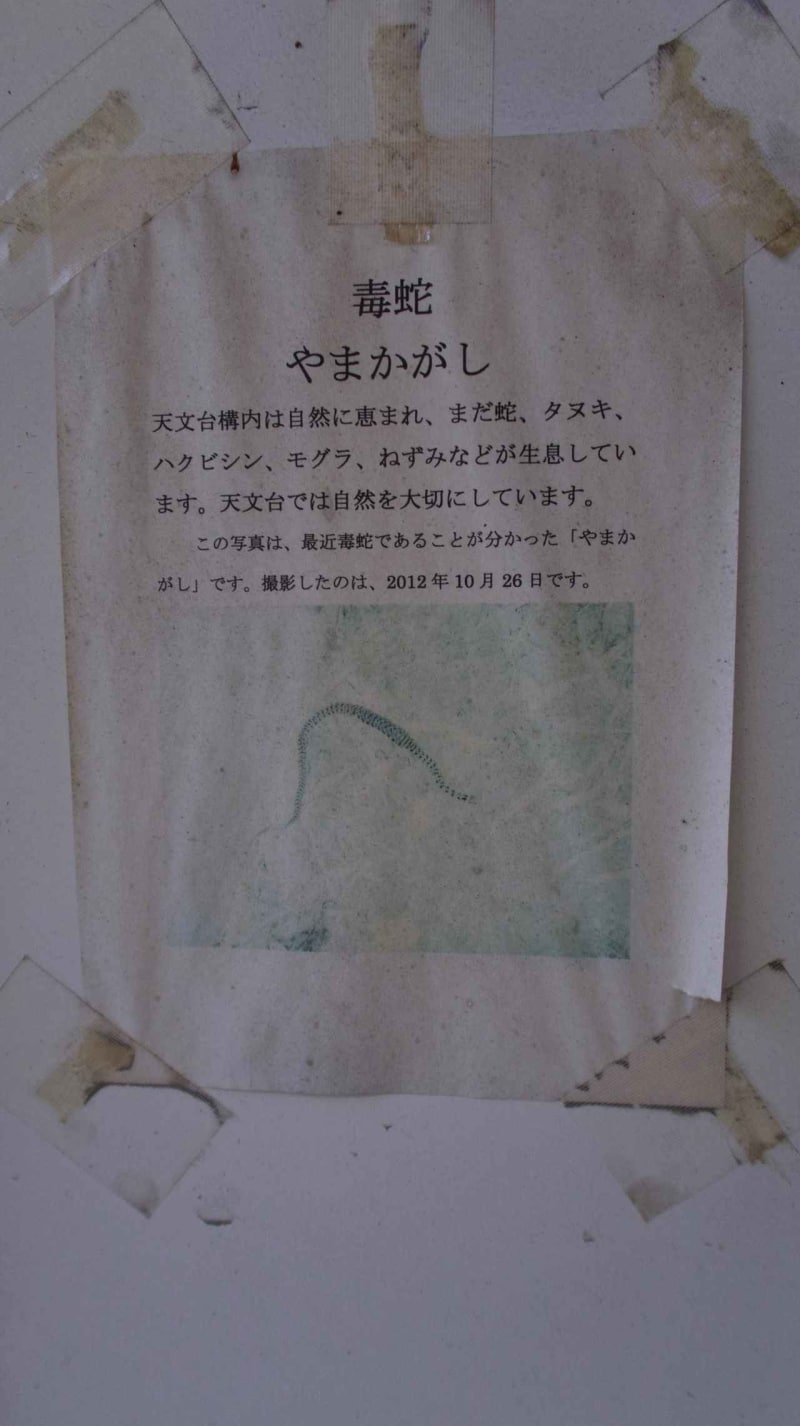 毒蛇
やまかがし
天文台構内は自然に恵まれ、まだ蛇、タヌキ、
ハクビシン、モグラ、ねずみなどが生息してい
ます。天文台では自然を大切にしています。
この写真は、最近毒蛇であることが分かった「やまか
がし」です。撮影したのは、2012年10月26日です。